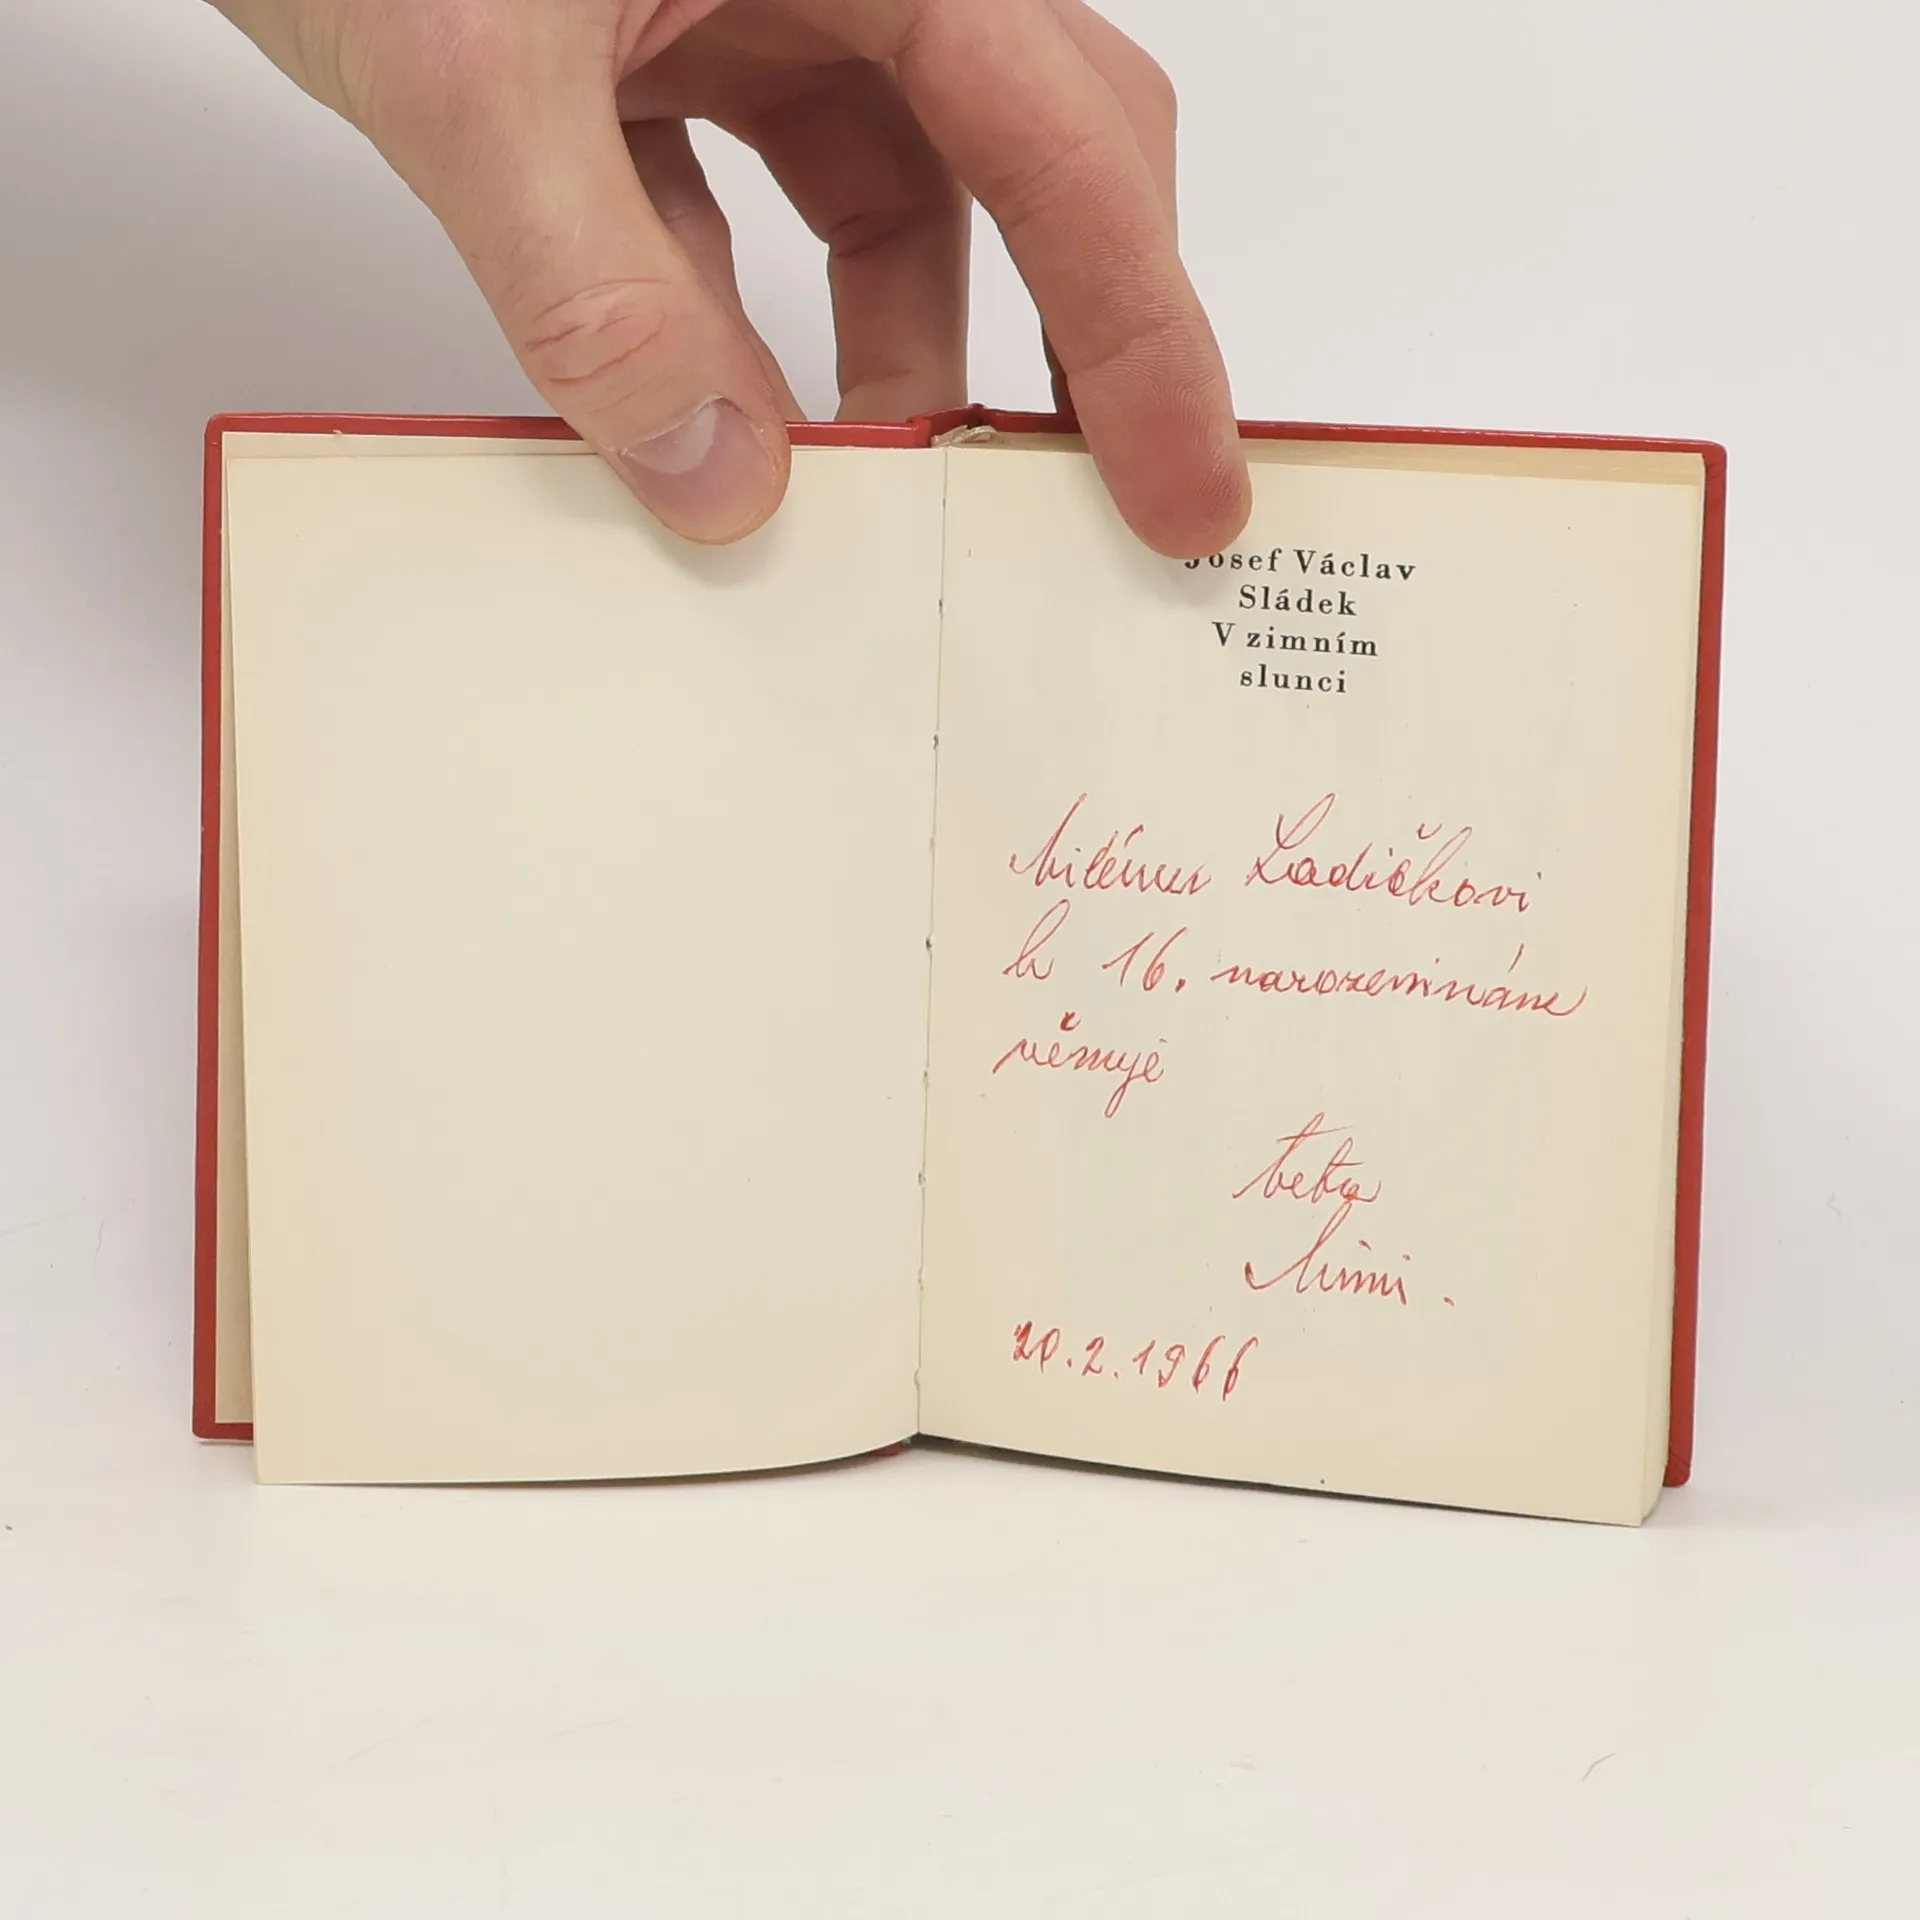 Josef Václav
Sládek
V zimním
slunci
Milému Ladičkovi
k 16. narozeninám
věnuje
teta
Mimi.
20.2.1966